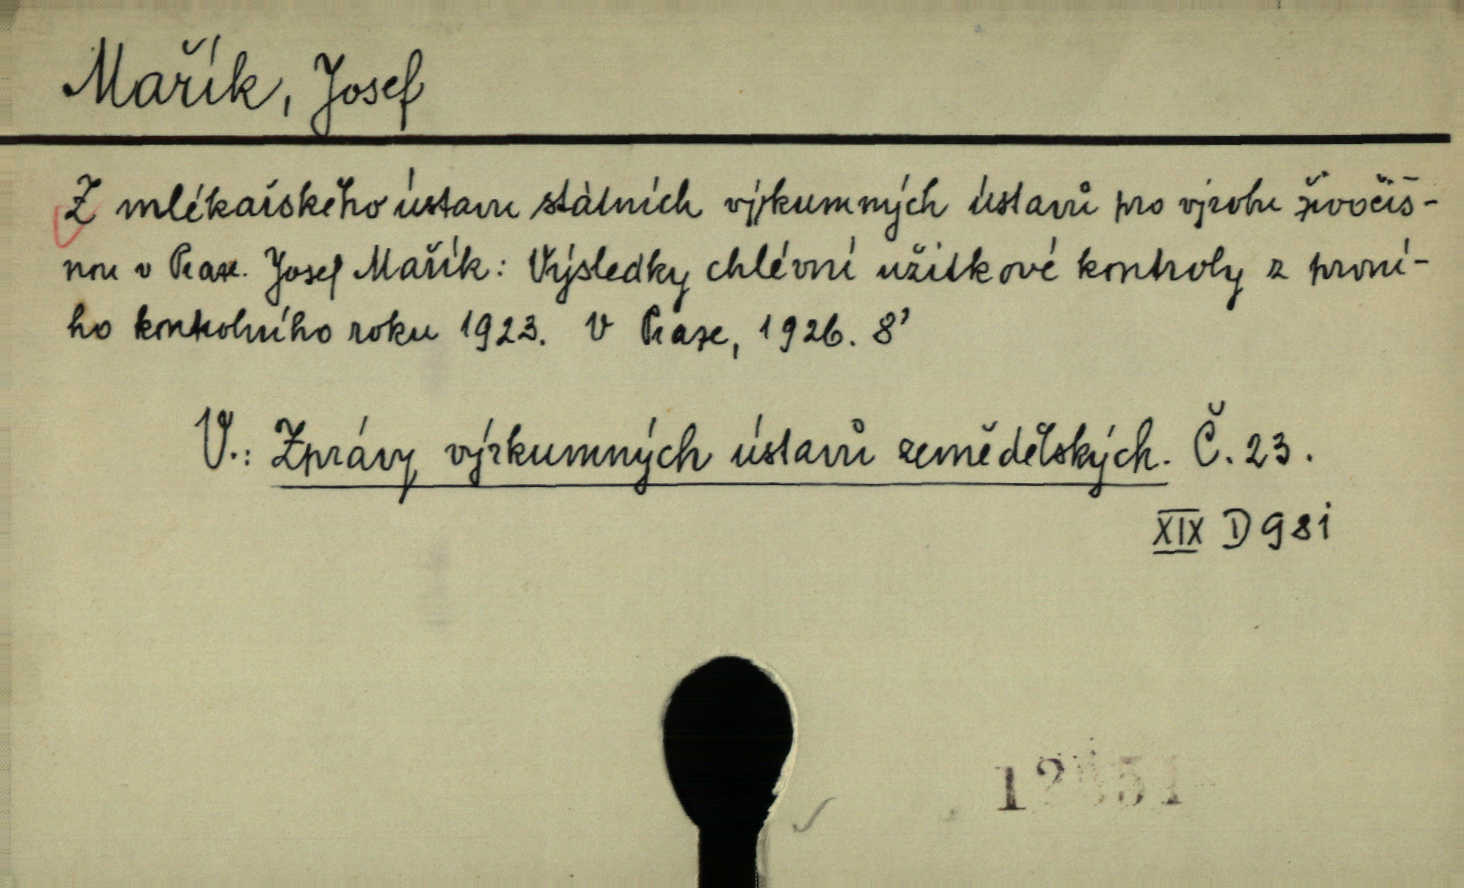 Mařík, Josef
Z mlékařského ústavu státních výzkumných ústavů pro výrobu živočiš-
nou v Praze. Josef Mařík: Výsledky chlévní užitkové kontroly z první-
ho kontrolního roku 1923. V Praze, 1926. 8°
V.: Zprávy výzkumných ústavů zemědělských. Č. 23.
XIX D 981